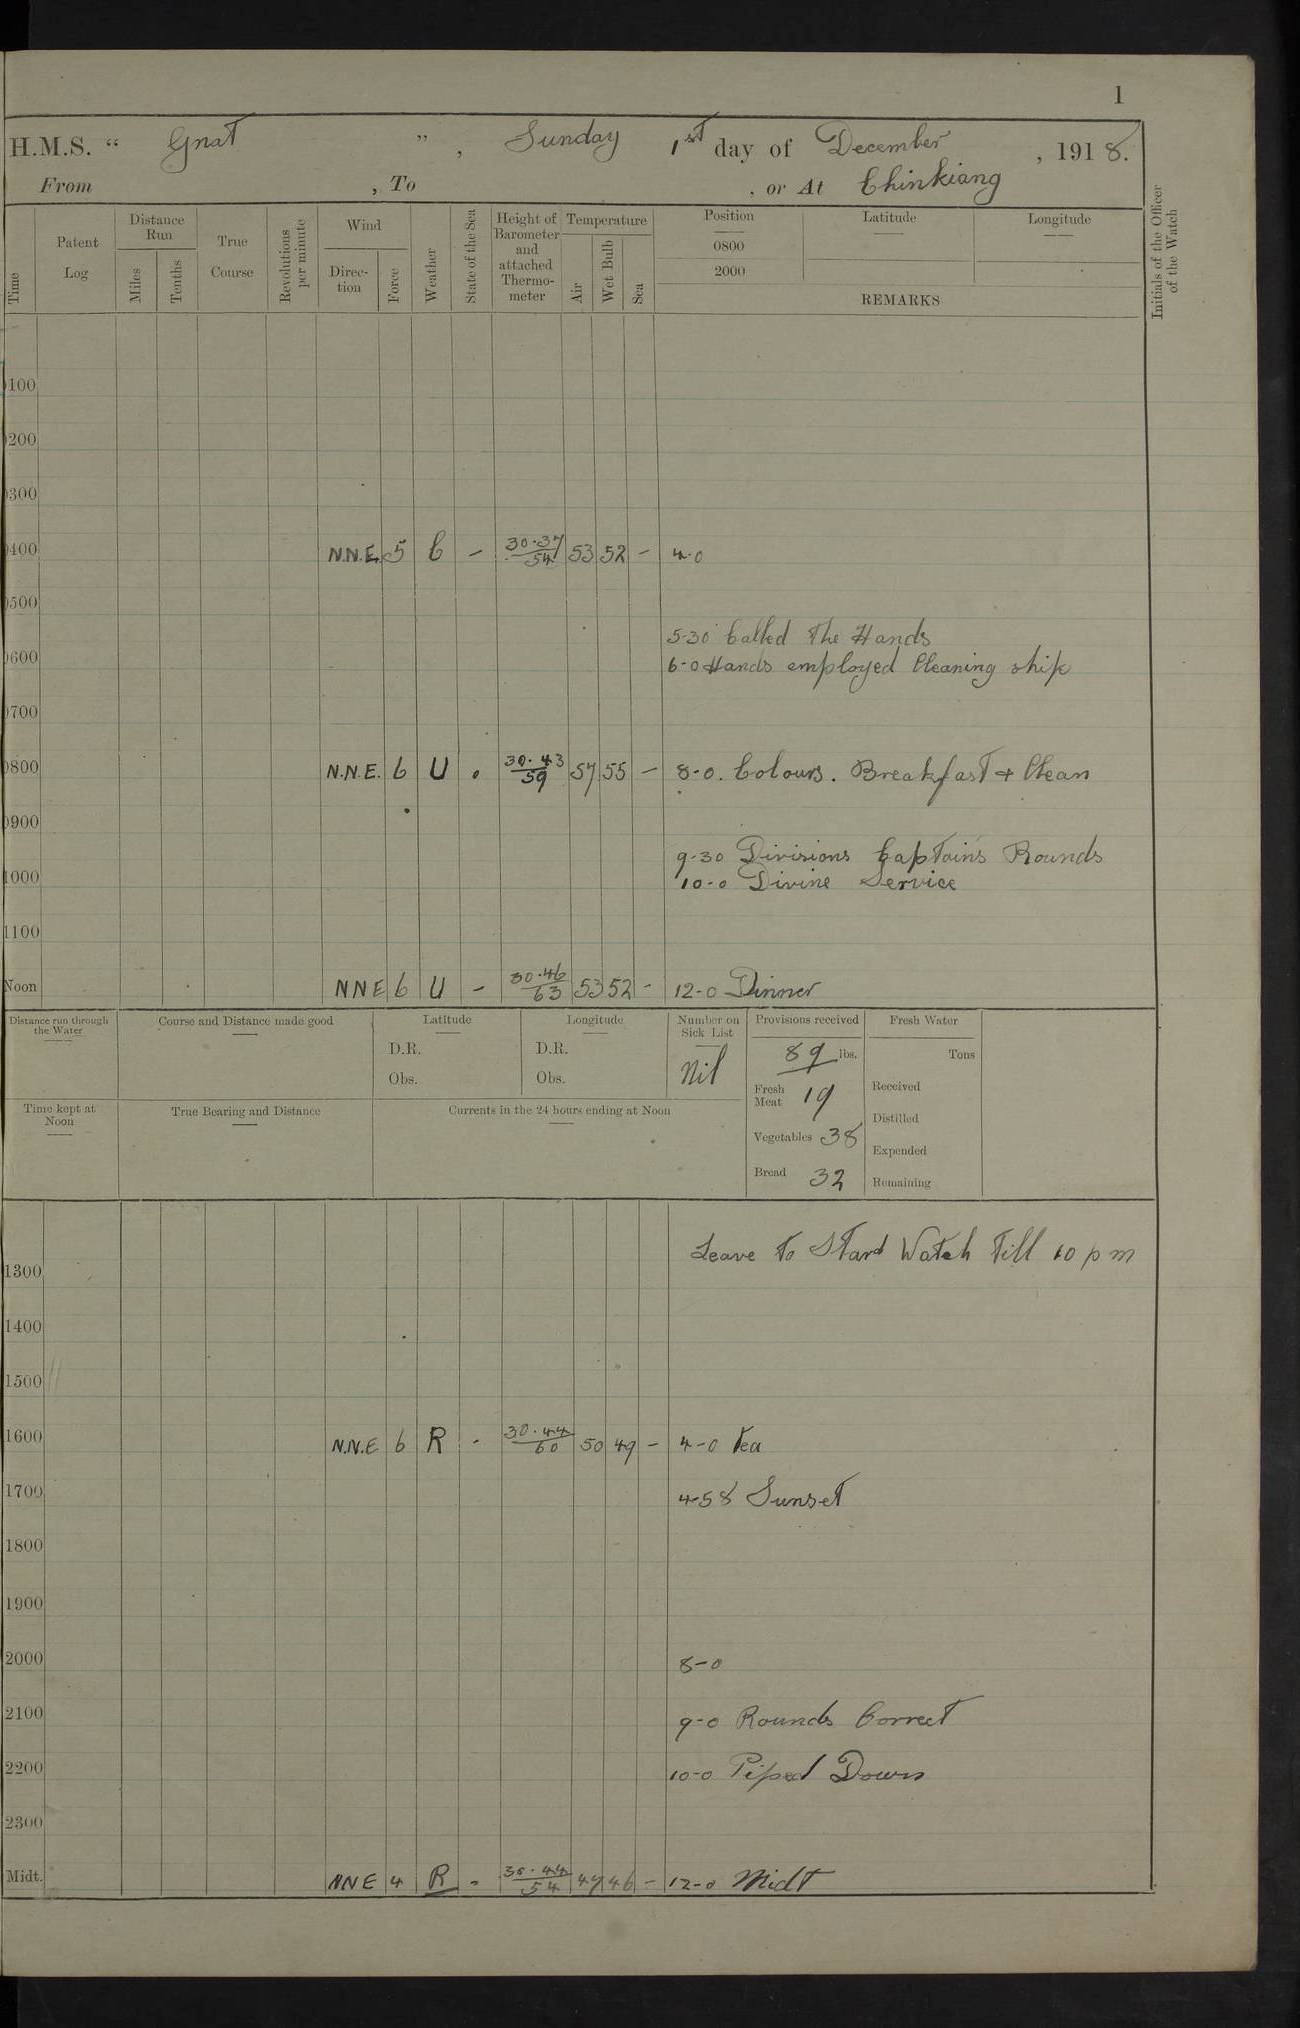 1
H.M.S. “ Gnat ” , Sunday 1st day of December , 1918.
From , To , or At Chinkiang
Time
Patent Log
Distance Run
Miles
Tenths
True Course
Revolutions per minute
Wind
Direction
Force
Weather
State of the Sea
Height of Barometer and attached Thermometer
Temperature
Air
Wet Bulb
Sea
Position Latitude Longitude
0800
2000
REMARKS
Initials of the Officer of the Watch
0100
0200
0300
0400 N.N.E. 5 C – 30.37/54 53 52 – 4-0
0500
5-30 Called The Hands
0600 6-0 Hands employed Cleaning ship
0700
0800 N.N.E. 6 U . 30.43/59 57 55 – 8-0. Colours. Breakfast + Clean
0900
9-30 Divisions Captains Rounds
1000 10-0 Divine Service
1100
Noon NNE 6 U – 30.46/63 53 52 – 12-0 Dinner
Distance run through the Water
Course and Distance made good
Latitude
D.R.
Obs.
Longitude
D.R.
Obs.
Number on Sick List
Nil
Provisions received
89 lbs.
Fresh Meat 19
Vegetables 38
Bread 32
Fresh Water
Tons
Received
Distilled
Expended
Remaining
Time kept at Noon
True Bearing and Distance
Currents in the 24 hours ending at Noon
Leave To Stard Watch Till 10 p m
1300
1400
1500
1600 N.N.E 6 R - 30.44/60 50 49 – 4-0 Tea
1700 4-58 Sunset
1800
1900
2000 8-0
2100 9-0 Rounds Correct
2200 10-0 Piped Down
2300
Midt. NNE 4 R - 30.44/54 47 46 – 12-0 Midt